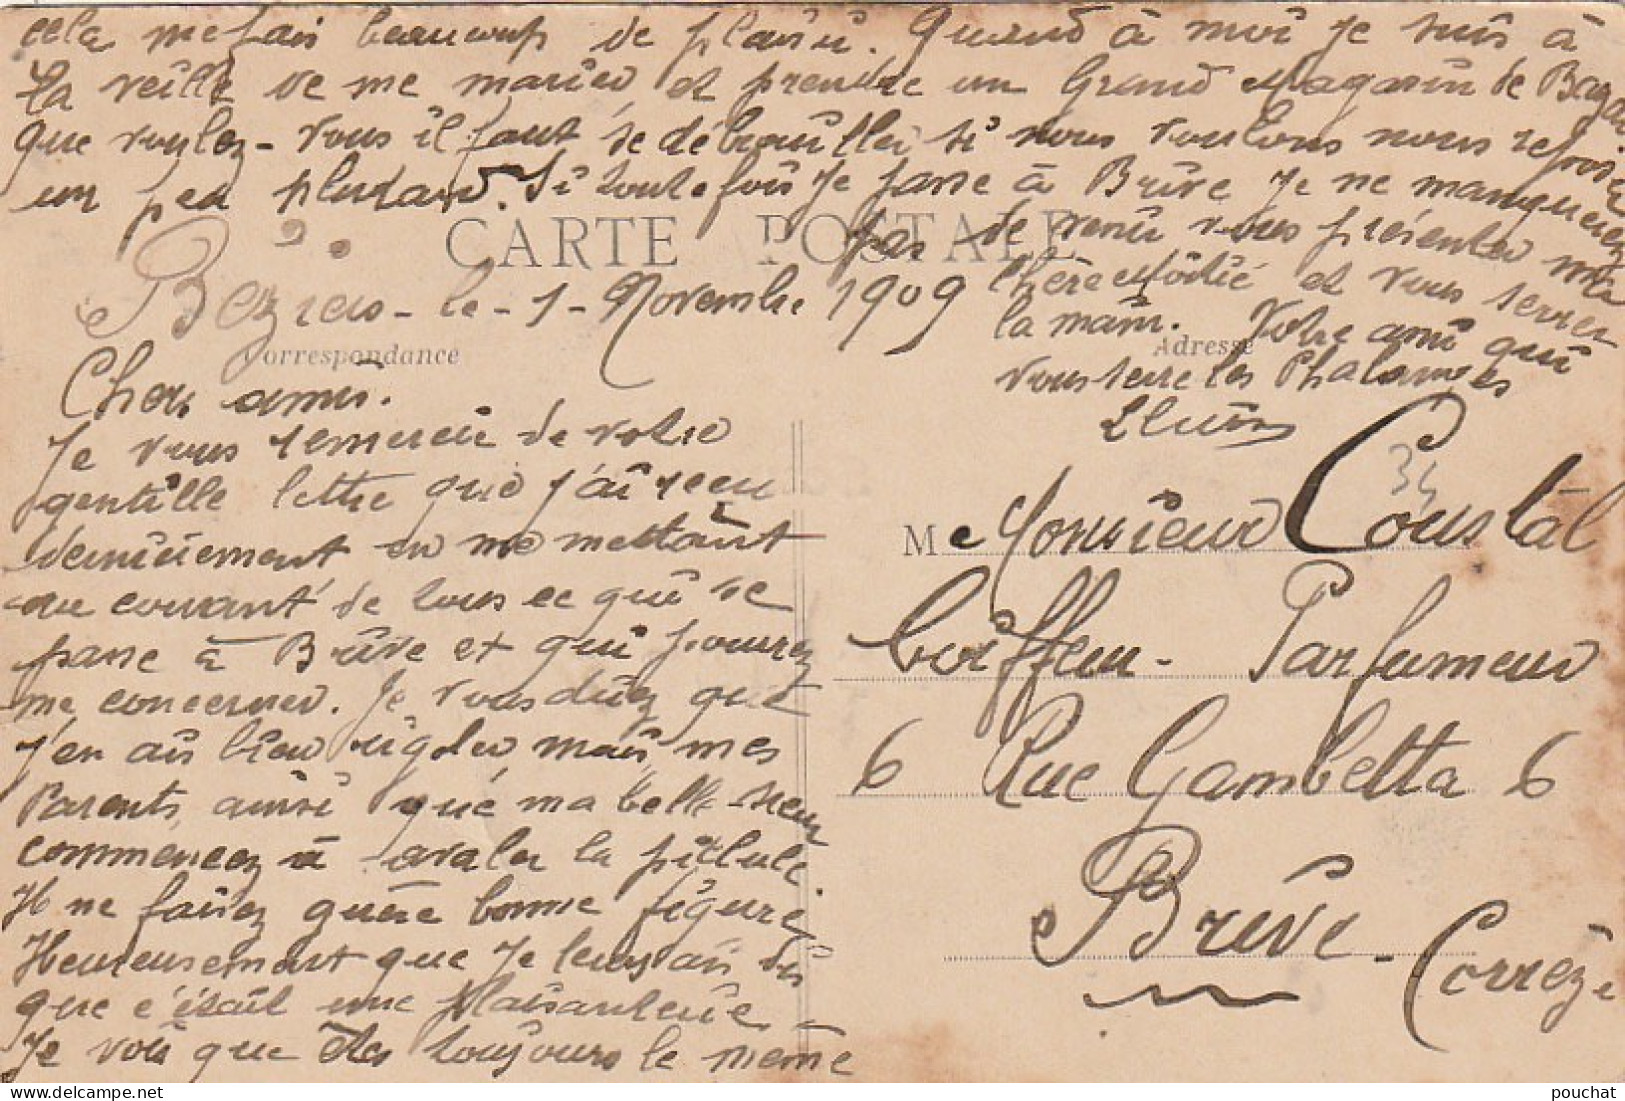 Béziers - le - 1 - Novembre 1909
Cher ami.
Je vous remercie de votre
gentille lettre que j'ai reçu
dernièrement en me mettant
au courant de tous ce qui se
passe à Brive et qui pourrez
me concerner. Je vous direz que
j'en ai bien rigoler, mais mes
Parents, ainsi que ma belle-sœur
commencez à avaler la pillule.
Il ne faisez guère bonne figure,
Heureusement que je leurs ai dis
que c'était une plaisanterie -
Je vois que êtes toujours le même
cela me fais beaucoup de plaisir. Quand à moi je suis à
la veille de me marier et prendre un Grand Magasin de Bazar
que voulez-vous il faut se débrouiller si nous voulons nous reposer
un peu plutard. Si toutefois je passe à Brive je ne manquerez
pas de venir vous présenter ma
chère Moitié et vous serrer
la main. Votre ami qui
vous serre les Phalanges
CARTE POSTALE
Correspondance
Adresse
34
M Monsieur Coustal
Coiffeur - Parfumeur
6 Rue Gambetta 6
Brive - Corrèze
pouchat